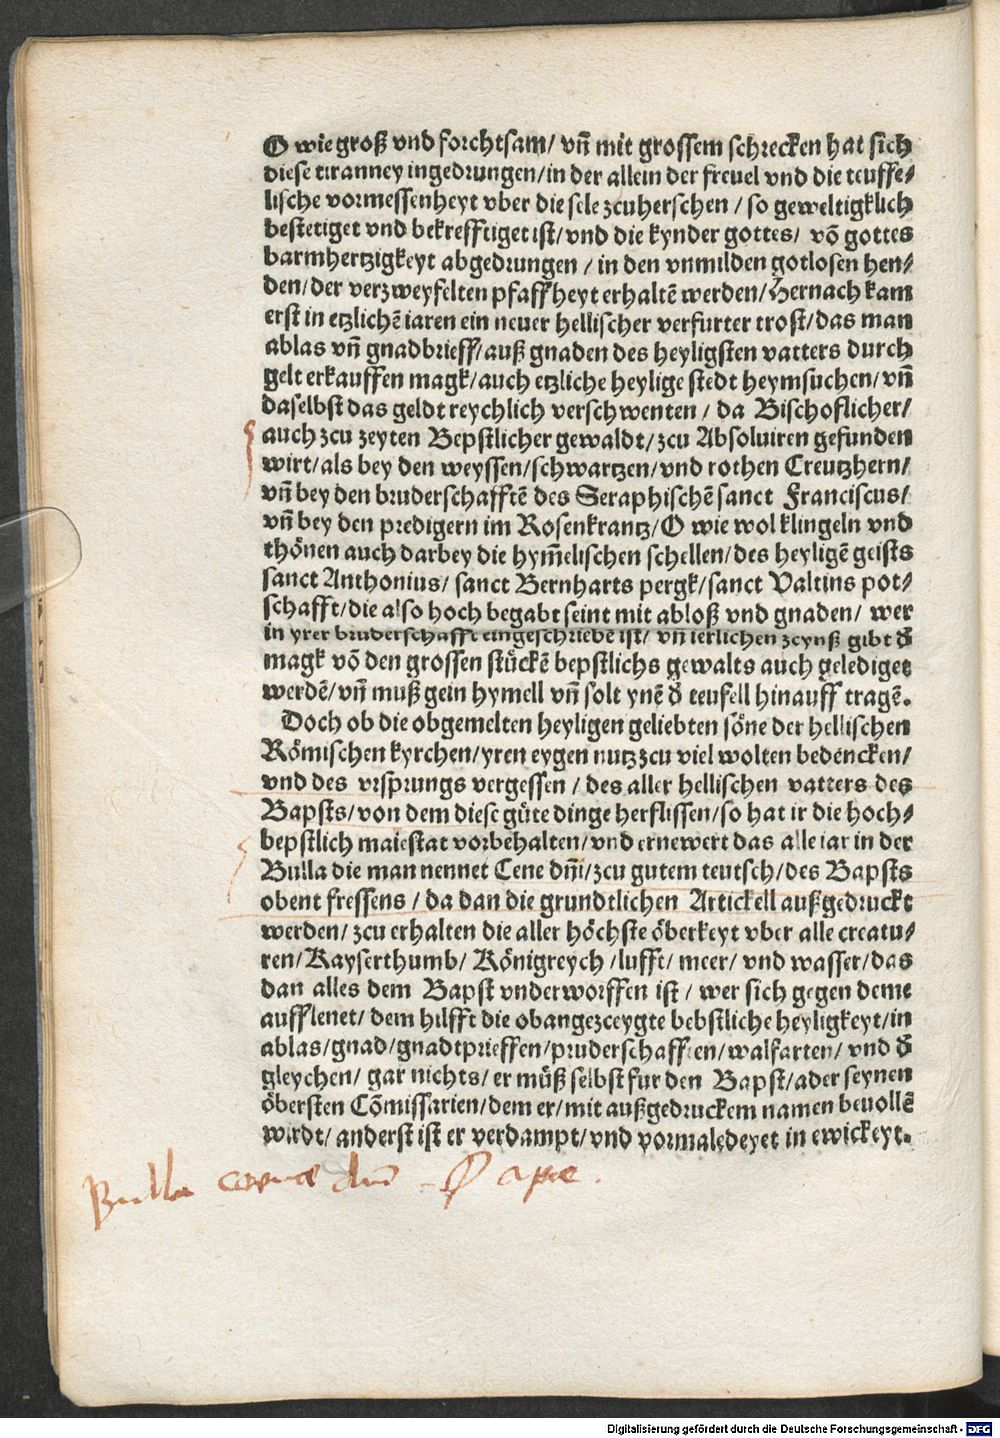 O wie groß vnd forchtsam/ vn̄ mit grossem schrecken hat sich
diese tiranney ingedrungen/in der allein der freuel vnd die teuffe⸗
lische vormessenheyt vber die sele zcuherschen / so geweltigklich
bestetiget vnd bekrefftiget ist/ vnd die kynder gottes/ vō gottes
barmhertzigkeyt abgedrungen / in den vnmilden gotlosen hen⸗
den/ der verzweyfelten pfaffheyt erhaltē werden/ Hernach kam
erst in etzlichē iaren ein neuer hellischer verfurter trost/ das man
ablas vn̄ gnadbrieff/ auß gnaden des heyligsten vatters durch
gelt erkauffen magk/ auch etzliche heylige stedt heymsuchen/ vn̄
daselbst das geldt reychlich verschwenten / da Bischoflicher/
auch zcu zeyten Bepstlicher gewaldt/ zcu Absoluiren gefunden
wirt/ als bey den weyssen/ schwartzen/ vnd rothen Creutzhern/
vn̄ bey den bruderschafftē des Seraphischē sanct Franciscus/
vn̄ bey den predigern im Rosenkrantz/ O wie wol klingeln vnd
thönen auch darbey die hym̄elischen schellen/ des heyligē geists
sanct Anthonius/ sanct Bernharts pergk/ sanct Valtins pot⸗
schafft/ die also hoch begabt seint mit abloß vnd gnaden/ wer
in yrer bruderschafft eingeschriebē ist/ vn̄ ierlichen zcynß gibt d̄
magk vō den grossen stückē bepstlichs gewalts auch gelediget
werdē/ vn̄ muß gein hymell vn̄ solt ynē d̄ teufell hinauff tragē.
Doch ob die obgemelten heyligen geliebten söne der hellischen
Römischen kyrchen/ yren eygen nutz zcu viel wolten bedencken/
vnd des vrsprungs vergessen / des aller hellischen vatters des
Bapsts/ von dem diese güte dinge herflissen/ so hat ir die hoch⸗
bepstlich maiestat vorbehalten/ vnd ernewert das alle iar in der
Bulla die man nennet Cene dn̄i/ zcu gutem teutsch/ des Bapsts
obent fressens / da dan die grundtlichen Artickell außgedruckt
werden/ zcu erhalten die aller höchste öberkeyt vber alle creatu⸗
ren/ Kayserthumb/ Königreych /lufft/ meer/ vnd wasser/ das
dan alles dem Bapst vnderworffen ist / wer sich gegen deme
aufflenet/ dem hilfft die obangezceygte bebstliche heyligkeyt/ in
ablas/ gnad/ gnadtprieffen/ pruderschafften/ walfarten/ vnd d̄
gleychen/ gar nichts/ er müß selbst fur den Bapst/ ader seynen
öbersten Cōmissarien/ dem er/ mit außgedruckem namen beuollē
wirdt/ anderst ist er verdampt/ vnd vormaledeyet in ewickeyt.
Bulla coenae dn̄i - Papae.
Digitalisierung gefördert durch die Deutsche Forschungsgemeinschaft - DFG